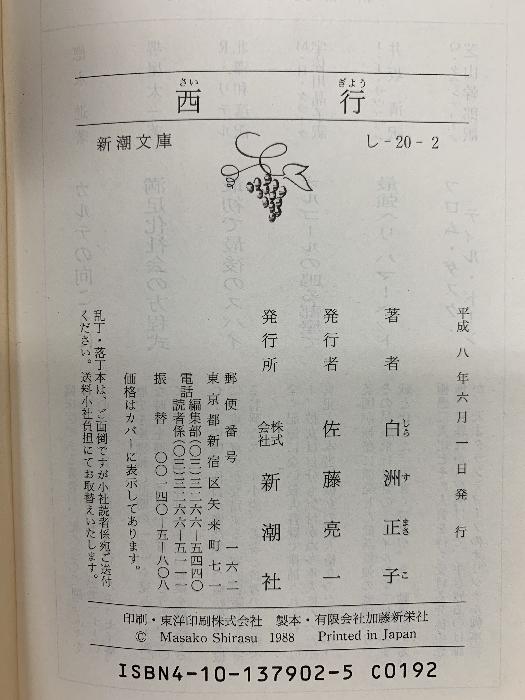 西行
さいぎよう
新潮文庫
し-20-2
平成八年六月一日発行
著者 白洲正子
しらすまさこ
発行者 佐藤亮一
発行所 株式会社 新潮社
郵便番号 一六二
東京都新宿区矢来町七一
電話 編集部(〇三)三二六六―五四四〇
読者係(〇三)三二六六―五一一一
振替 〇〇一四〇―五―八〇八
価格はカバーに表示してあります。
乱丁・落丁本は、ご面倒ですが小社読者係宛ご送付
ください。送料小社負担にてお取替えいたします。
印刷・東洋印刷株式会社 製本・有限会社加藤新栄社
© Masako Shirasu 1988 Printed in Japan
ISBN4-10-137902-5 C0192